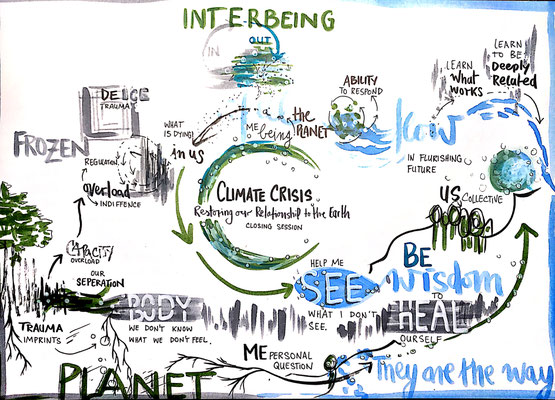 INTERBEING
IN
OUT
LEARN
TO BE
Deeply
Related
LEARN
What
WORKS
ABILITY
TO RESPOND
DEICE
TRAUMA
FROZEN
REGULATION
overload
INDIFFENCE
WHAT
IS DYING!
in us
ME
being
the
PLANET
flow
IN FLURISHING
FUTURE
US
COLLECTIVE
CLIMATE CRISIS
Restoring our Relationship to the Earth
CLOSING SESSION
CAPACITY
OVERLOAD
OUR
SEPERATION
HELP ME
SEE
WHAT I DON'T
SEE.
BE
wisdom
TO
HEAL
OURSELF
BODY
WE DON'T KNOW
WHAT WE DON'T FEEL.
TRAUMA
IMPRINTS
ME PERSONAL
QUESTION
They are the way
PLANET